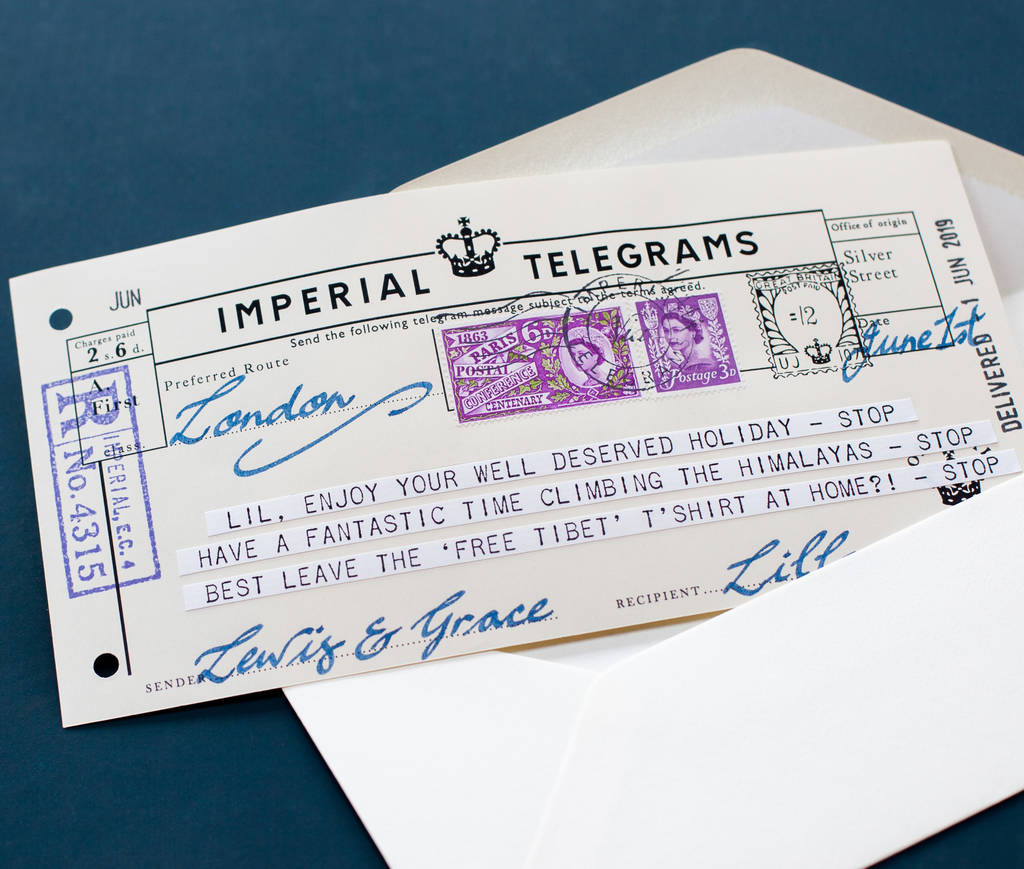 JUN
IMPERIAL TELEGRAMS
Send the following telegram message subject to the terms agreed.
Office of origin
Silver
Street
Date
June 1st
DELIVERED 1 JUN 2019
Charges paid
2 s. 6 d.
A.
First
class.
R
No. 4315
IMPERIAL, E.C. 4
Preferred Route
London
1863
PARIS
POSTAL
CONFERENCE
CENTENARY
6D
Postage 3D
GREAT BRITAIN
POST PAID
=12
LIL, ENJOY YOUR WELL DESERVED HOLIDAY – STOP
HAVE A FANTASTIC TIME CLIMBING THE HIMALAYAS – STOP
BEST LEAVE THE ‘FREE TIBET’ T’SHIRT AT HOME?! – STOP
SENDER Lewis & Grace
RECIPIENT Lill